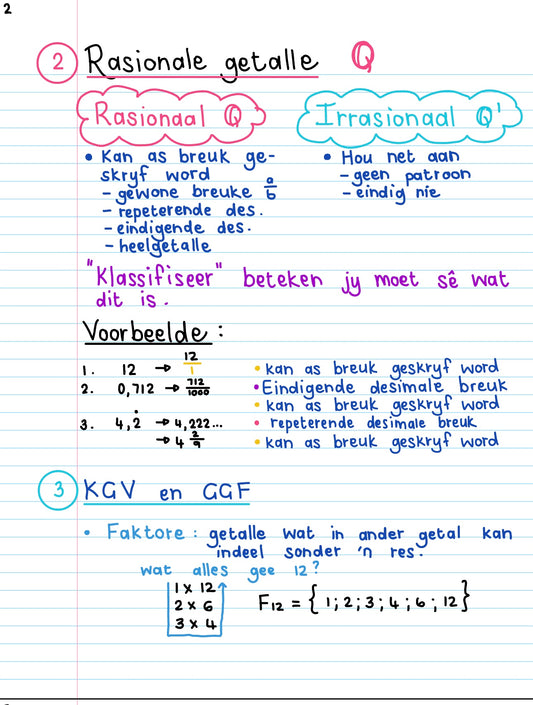 2
2 Rasionale getalle ℚ
Rasionaal ℚ
Irrasionaal ℚ'
• Kan as breuk ge-
skryf word
– gewone breuke a/b
– repeterende des.
– eindigende des.
– heelgetalle
• Hou net aan
– geen patroon
– eindig nie
"Klassifiseer" beteken jy moet sê wat
dit is.
Voorbeelde:
1. 12 → 12/1 • kan as breuk geskryf word
2. 0,712 → 712/1000 • Eindigende desimale breuk
• kan as breuk geskryf word
3. 4,2̇ → 4,222... • repeterende desimale breuk
→ 4 2/9 • kan as breuk geskryf word
3 KGV en GGF
• Faktore: getalle wat in ander getal kan
indeel sonder 'n res.
wat alles gee 12?
1 x 12
2 x 6
3 x 4
F₁₂ = { 1; 2; 3; 4; 6; 12 }